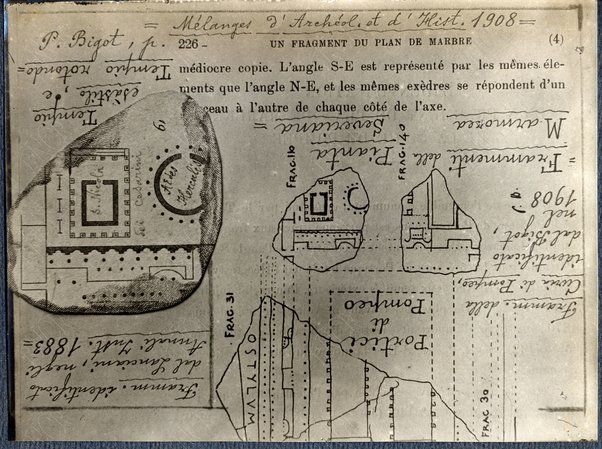 = Mélanges d'Archéol. et d'Hist. 1908 =
P. Bigot, p. 226 - UN FRAGMENT DU PLAN DE MARBRE (4)
médiocre copie. L'angle S-E est représenté par les mêmes élé-
ments que l'angle N-E, et les mêmes exèdres se répondent d'un
ceau à l'autre de chaque côté de l'axe.
Tempio
elàstilo, e
Tempio rotondo=
= Frammenti della
Pianta
Marmorea
Severiana =
FRAG. 110
FRAG. 140
S. Nicola
dei Cadarini
Aedes
Herculis
Framm. della
Curia di Pompeo,
identificato
dal Bigot,
nel
1908
FRAG. 31
OSTYLVM
Portici
di
Pompeo
FRAG 30
Framm. identificato
dal Lanciani, negli
Annali Inst. 1883=